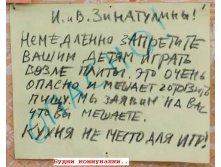 И. и В. ЗИНАТУЛИНЫ!
НЕМЕДЛЕННО ЗАПРЕТИТЕ
ВАШИМ ДЕТЯМ ИГРАТЬ
ВОЗЛЕ ПЛИТЫ. ЭТО ОЧЕНЬ
ОПАСНО И МЕШАЕТ ГОТОВИТЬ
ПИЩУ. МЫ ЗАЯВИМ НА ВАС
ЧТО ВЫ МЕШАЕТЕ.
КУХНЯ НЕ МЕСТО ДЛЯ ИГР!
Будни коммуналки..